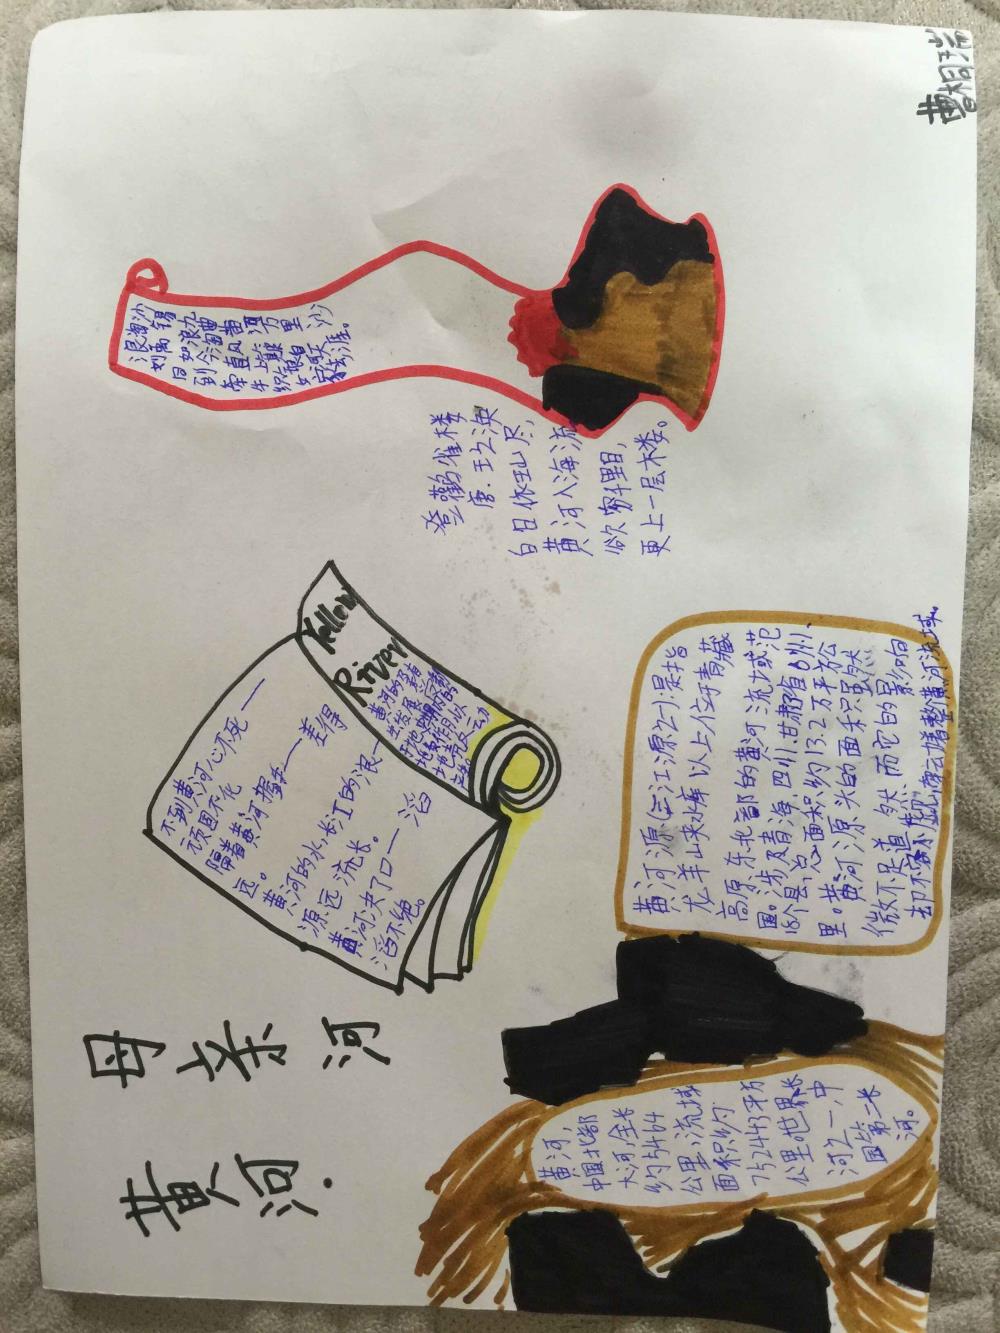 黄河.
母亲河
不到黄河心不死——
顽固不化
隔着黄河握手——差得
远。
黄河的水,长江的浪——
源远流长。
黄河决了口——滔
滔不绝。
Yellow
River
浪淘沙
刘禹锡
九曲黄河万里沙
浪淘风簸自
到今日
登鹳雀楼
唐·王之涣
白日依山尽,
黄河入海流
欲穷千里目,
更上一层楼。
黄河,
中国北部
大河,全长
约5464
公里,流域
面积约
752443平方
公里。世界长
河之一,中
国第二长
河。
黄河源(三江源之一)是指
龙羊峡水库以上位于青藏
高原东北部的黄河流域范
围。涉及青海四川甘肃省6州、
18个县,总面积约13.2万平公
里。黄河源头的面积虽然
微不足道,然而它的影响
却不容小觑
曹相瑞